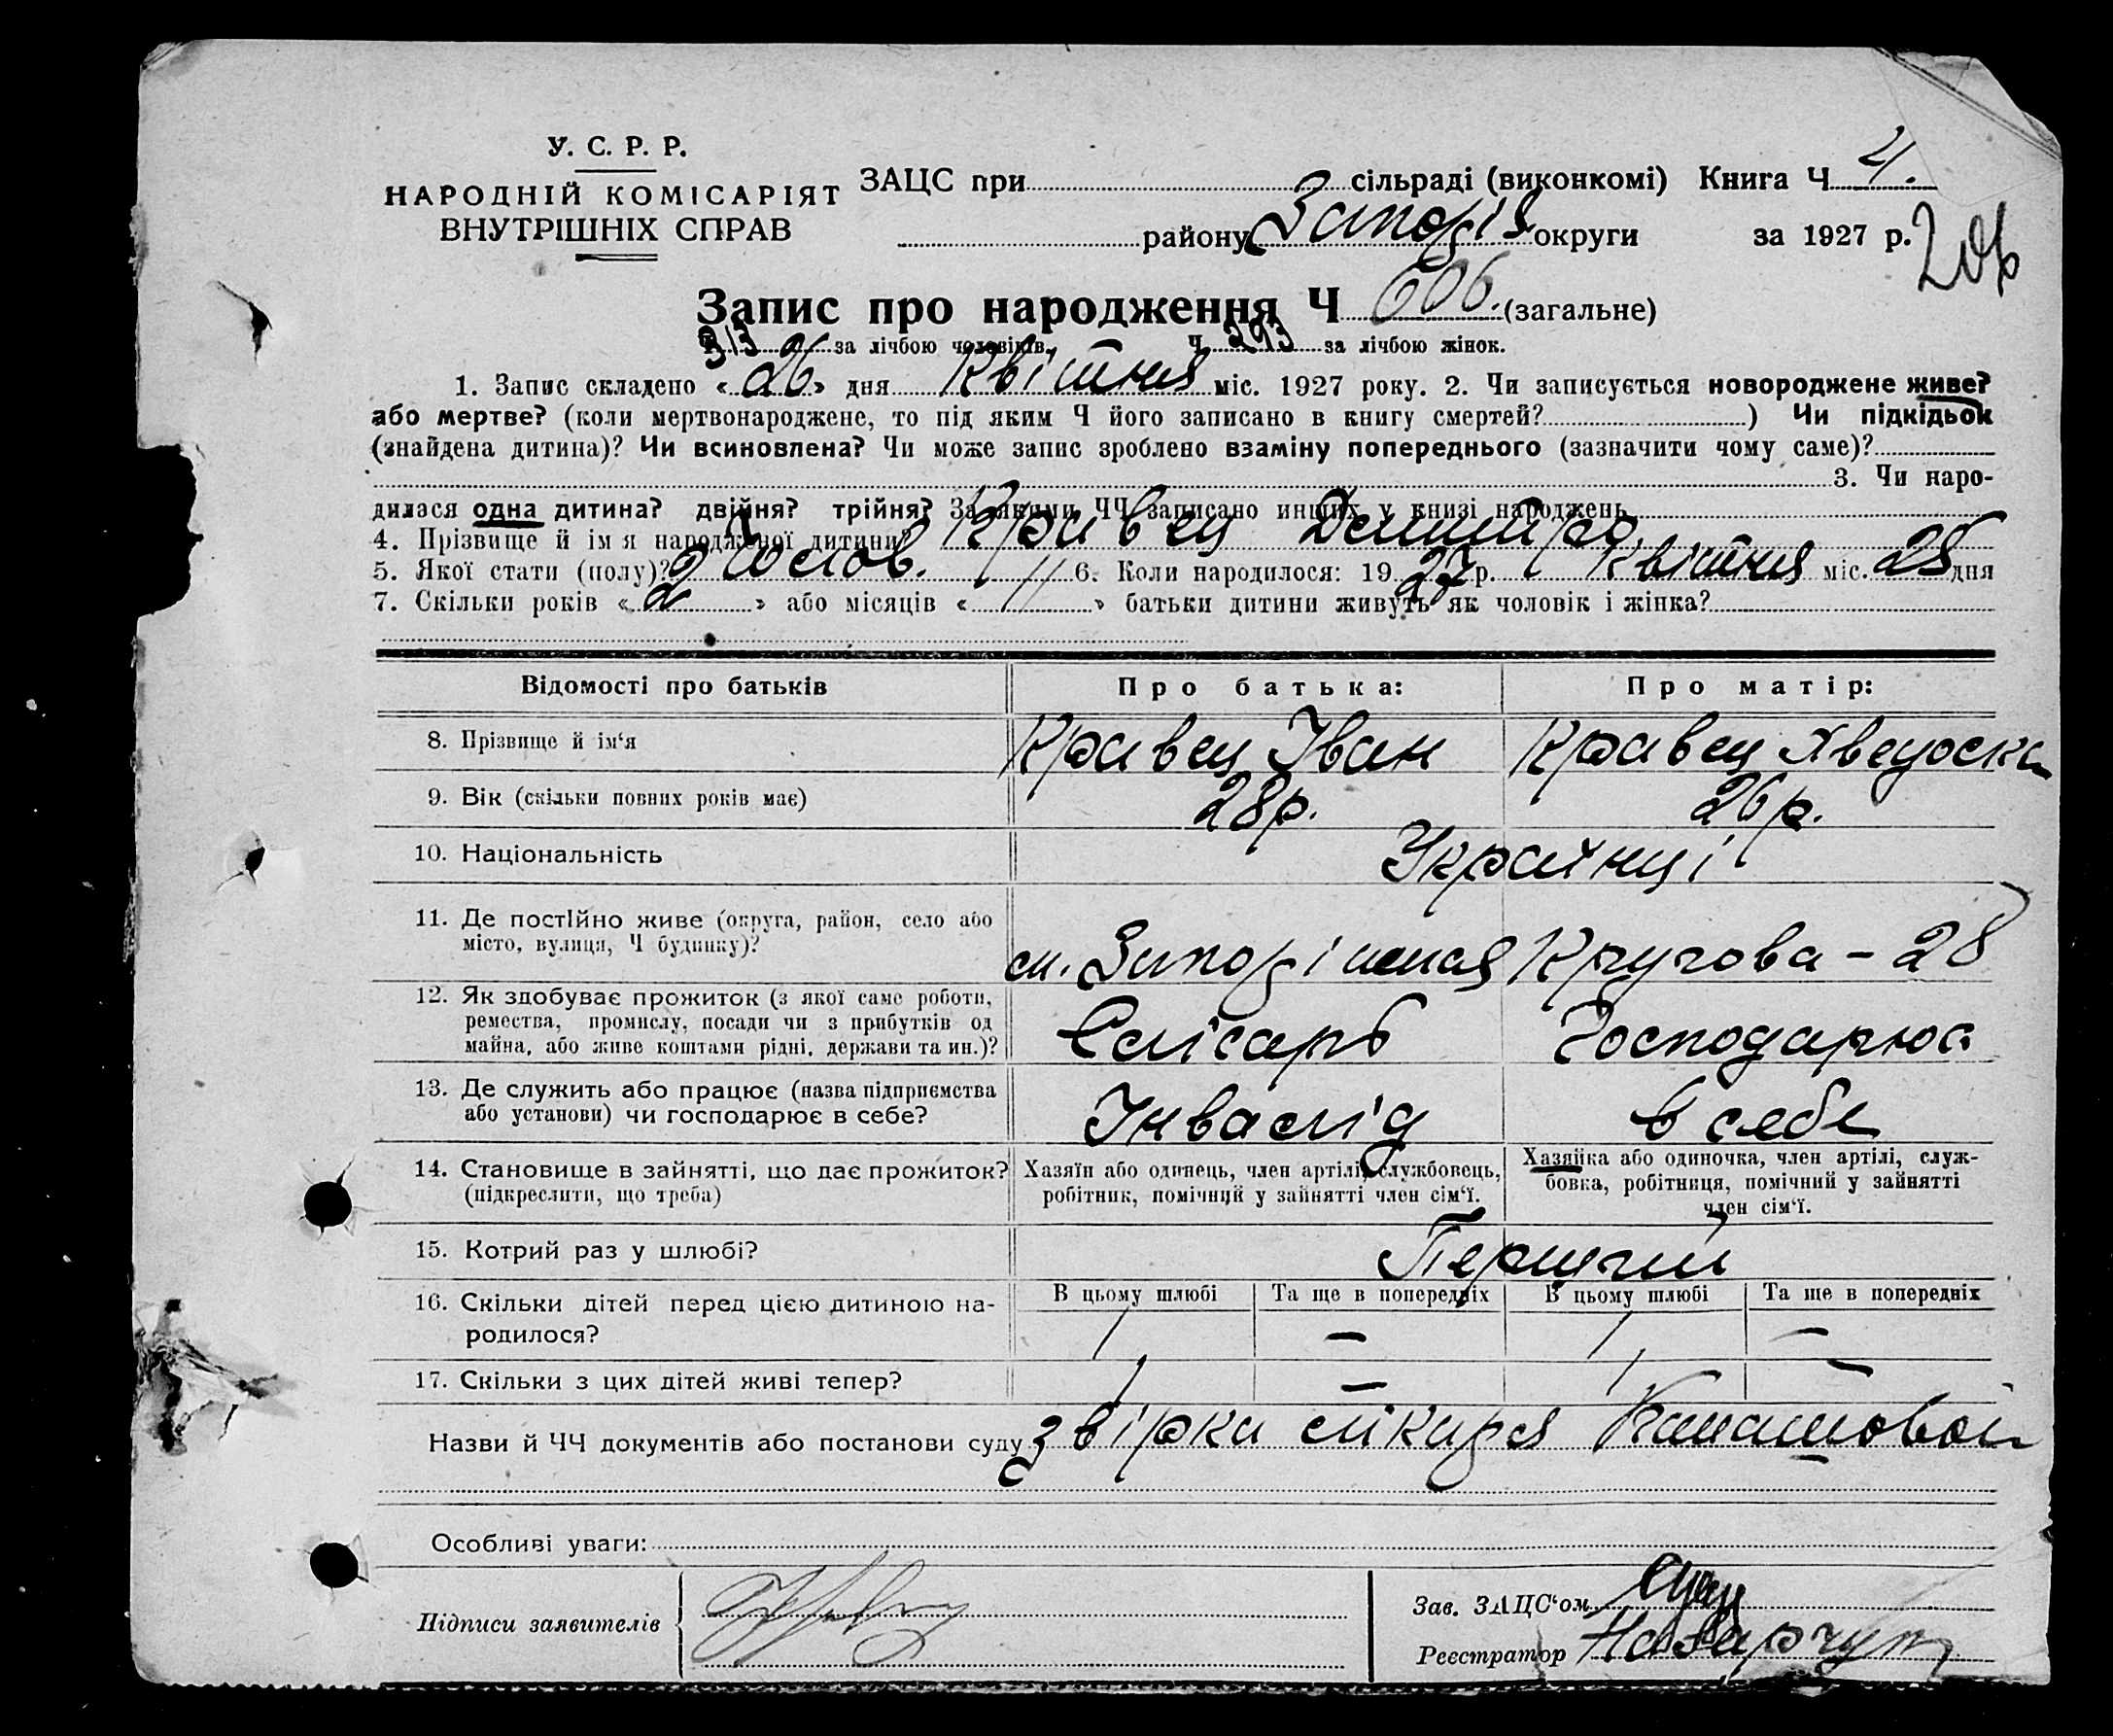 У. С. Р. Р.
НАРОДНІЙ КОМІСАРІЯТ
ВНУТРІШНІХ СПРАВ
ЗАЦС при сільраді (виконкомі) Книга Ч 4.
району Запоріз округи за 1927 р.
206
Запис про народження Ч 606. (загальне)
313 за лічбою чоловіків. Ч 293 за лічбою жінок.
1. Запис складено «26» дня Квітня міс. 1927 року. 2. Чи записується новороджене живе?
або мертве? (коли мертвонароджене, то під яким Ч його записано в книгу смертей? ) Чи підкідьок
(знайдена дитина)? Чи всиновлена? Чи може запис зроблено взаміну попереднього (зазначити чому саме)?
3. Чи наро-
дилася одна дитина? двійня? трійня? За якими ЧЧ записано инших у книзі народжень
4. Прізвище й ім я народженої дитини? Кравец Дмитро
5. Якої стати (полу)? Чолов. 6. Коли народилося: 1927 р. Квітня міс. 25 дня
7. Скільки років «2» або місяців « » батьки дитини живуть як чоловік і жінка?
Відомості про батьків Про батька: Про матір:
8. Прізвище й ім‘я Кравец Іван Кравец Хведоска
9. Вік (скільки повних років має) 28р. 26р.
10. Національність Українці
11. Де постІйно живе (округа, район, село або
місто, вулиця, Ч будинку)? м. Кругова - 28
12. Як здобуває прожиток (з якої саме роботи,
ремества, промислу, посади чи з прибутків од
майна, або живе коштами рідні, держави та ин.)? Слісарь Господарюэ
13. Де служить або працює (назва підприємства
або установи) чи господарює в себе? Інвалід в себе
14. Становище в зайнятті, що дає прожиток?
(підкреслити, що треба)
Хазяїн або одинець, член артілі, службовець,
робітник, помічний у зайнятті член сім‘ї.
Хазяйка або одиночка, член артілі, служ-
бовка, робітниця, помічний у зайнятті
член сім‘ї.
15. Котрий раз у шлюбі? Перший
16. Скільки дітей перед цією дитиною на-
родилося?
В цьому шлюбі Та ще в попередніх В цьому шлюбі Та ще в попередніх
1 — 1 —
17. Скільки з цих дітей живі тепер? 1 — 1 —
Назви й ЧЧ документів або постанови суду звірка лікаря
Особливі уваги:
Підписи заявителів
Зав. ЗАЦС‘ом
Реєстратор